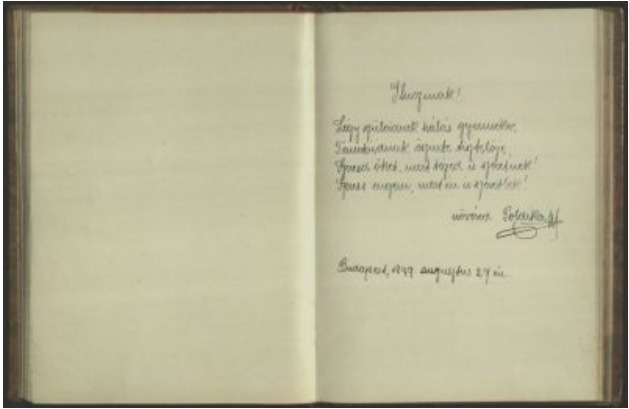 Iluczinak!
Légy szüleidnek hálás gyermeke,
Tanítóidnak őszinte tisztelője,
Szeresd őket, mert téged is szeretnek!
Szeress engem, mert én is szeretlek!
nővéred Poldika
Budapest, 1899 augusztus 27 én